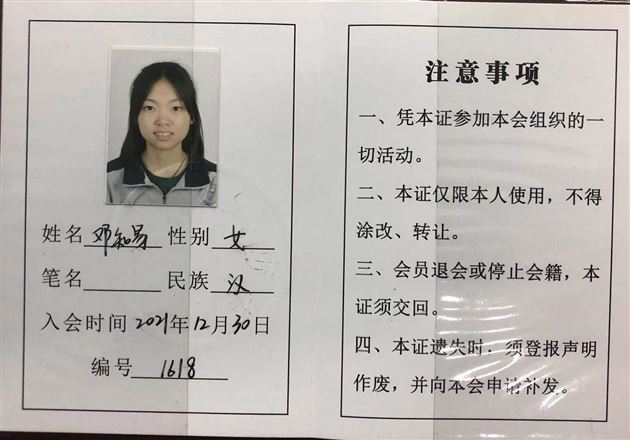 姓名 邓知易 性别 女
笔名 民族 汉
入会时间 2021年12月30日
编号 1618
注意事项
一、凭本证参加本会组织的一
切活动。
二、本证仅限本人使用，不得
涂改、转让。
三、会员退会或停止会籍，本
证须交回。
四、本证遗失时，须登报声明
作废，并向本会申请补发。